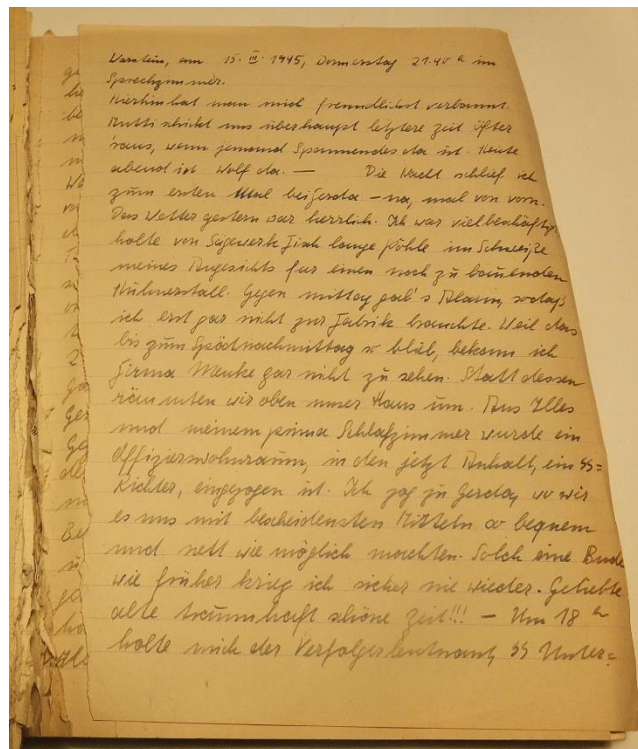 Warstein, am 15. III. 1945, Donnerstag 21.40 h im
Sprechzimmer.
Hierhin hat man mich freundlichst verbannt.
Mutti schickt uns überhaupt letztere Zeit öfter
'raus, wenn jemand Spannendes da ist. Heute
abend ist Wolf da. — Die Nacht schlief ich
zum ersten Mal bei Gerda – na, mal von vorn.
Das Wetter gestern war herrlich. Ich war viel beschäftigt,
holte von Sägewerk lange Pöhle im Schweiße
meines Angesichts für einen noch zu bauenden
Hühnerstall. Gegen mittag gab's Alarm, sodaß
ich erst gar nicht zur Fabrik brauchte. Weil das
bis zum Spätnachmittag so blieb, bekam ich
Firma gar nicht zu sehen. Statt dessen
räumten wir oben unser Haus um. Aus Illes
und meinem prima Schlafzimmer wurde ein
Offizierswohnraum, in den jetzt Anhalt, ein SS=
Richter, eingezogen ist. Ich zog zu Gerda, wo wir
es uns mit bescheidensten Mitteln so bequem
und nett wie möglich machten. Solch eine Bude
wie früher krieg ich sicher nie wieder. Geliebte
alte traumhaft schöne Zeit!!! – Um 18 h
holte mich der Verfolgerleutnant, SS Unter=